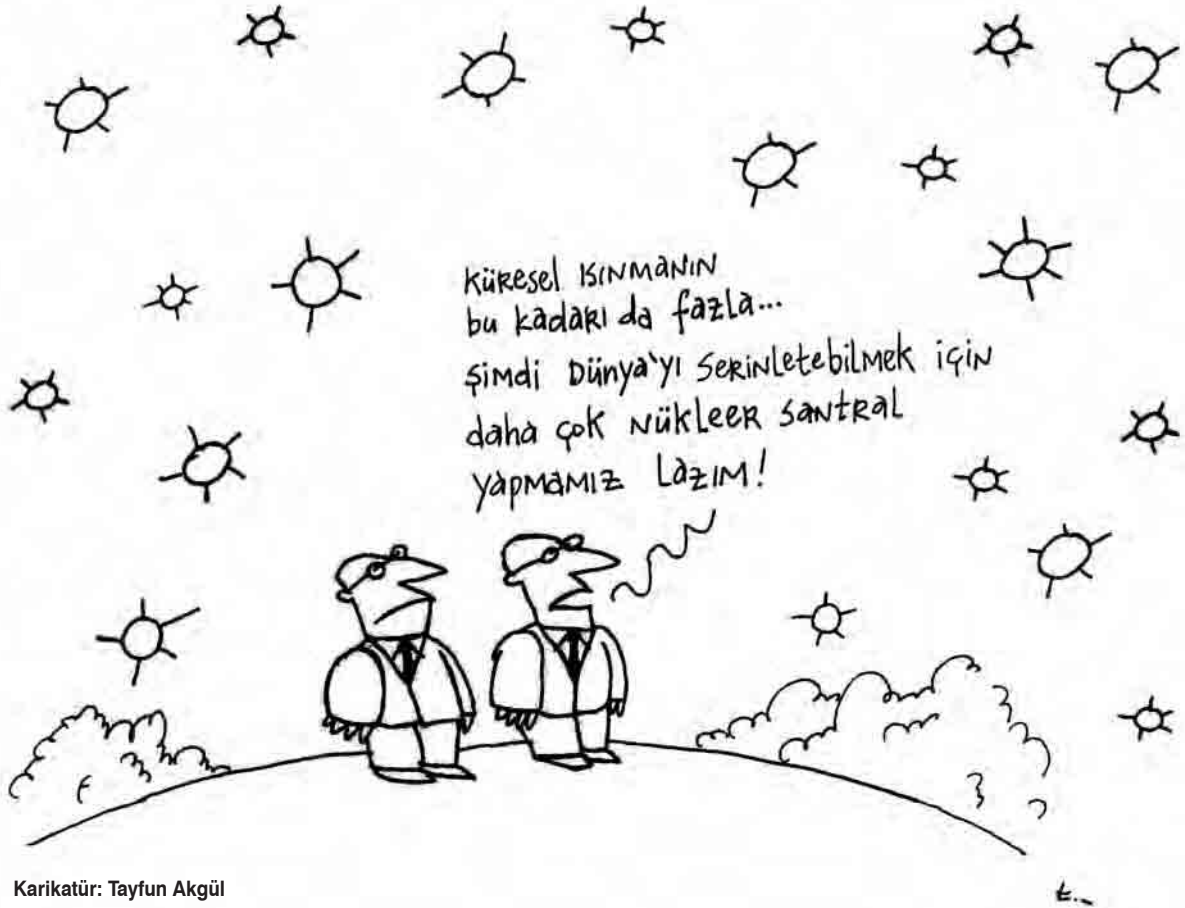 Küresel ısınmanın
bu kadarı da fazla...
şimdi Dünya'yı serinletebilmek için
daha çok nükleer santral
yapmamız lazım!
Karikatür: Tayfun Akgül
t...